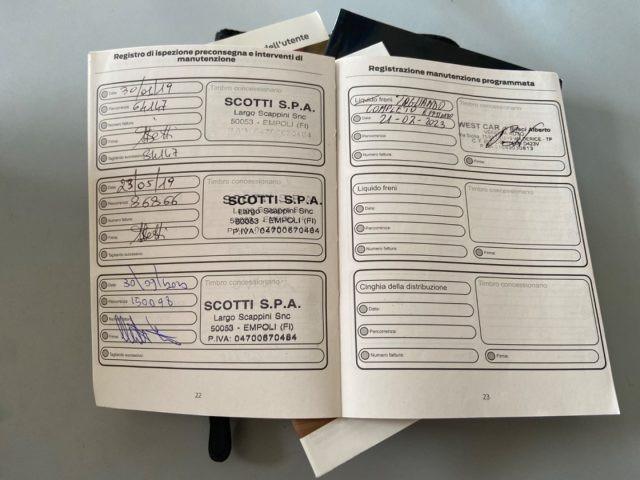 dell'utente
Registro di ispezione preconsegna e interventi di
manutenzione
Data: 30/01/19
Timbro concessionario
Percorrenza: 64147
Numero fattura:
SCOTTI S.P.A.
Largo Scappini Snc
50053 - EMPOLI (FI)
Firma:
Tagliando successivo: 84147
Data: 23/05/19
Timbro concessionario
Percorrenza: 86866
Numero fattura:
SCOTTI S.P.A.
Largo Scappini Snc
50053 - EMPOLI (FI)
P.IVA: 04700670484
Firma:
Tagliando successivo:
Data:
Timbro concessionario
Percorrenza: 150098
SCOTTI S.P.A.
Largo Scappini Snc
50053 - EMPOLI (FI)
P.IVA: 04700670484
Firma:
Tagliando successivo:
22
Registrazione manutenzione programmata
Liquido freni TAGLIANDO
COMPLETO
Data: 21-02-2023
Timbro concessionario
WEST CAR
Alberto
Percorrenza:
Numero fattura:
Firma:
Liquido freni
Timbro concessionario
Data:
Percorrenza:
Numero fattura:
Firma:
Cinghia della distribuzione
Timbro concessionario
Data:
Percorrenza:
Numero fattura:
Firma:
23